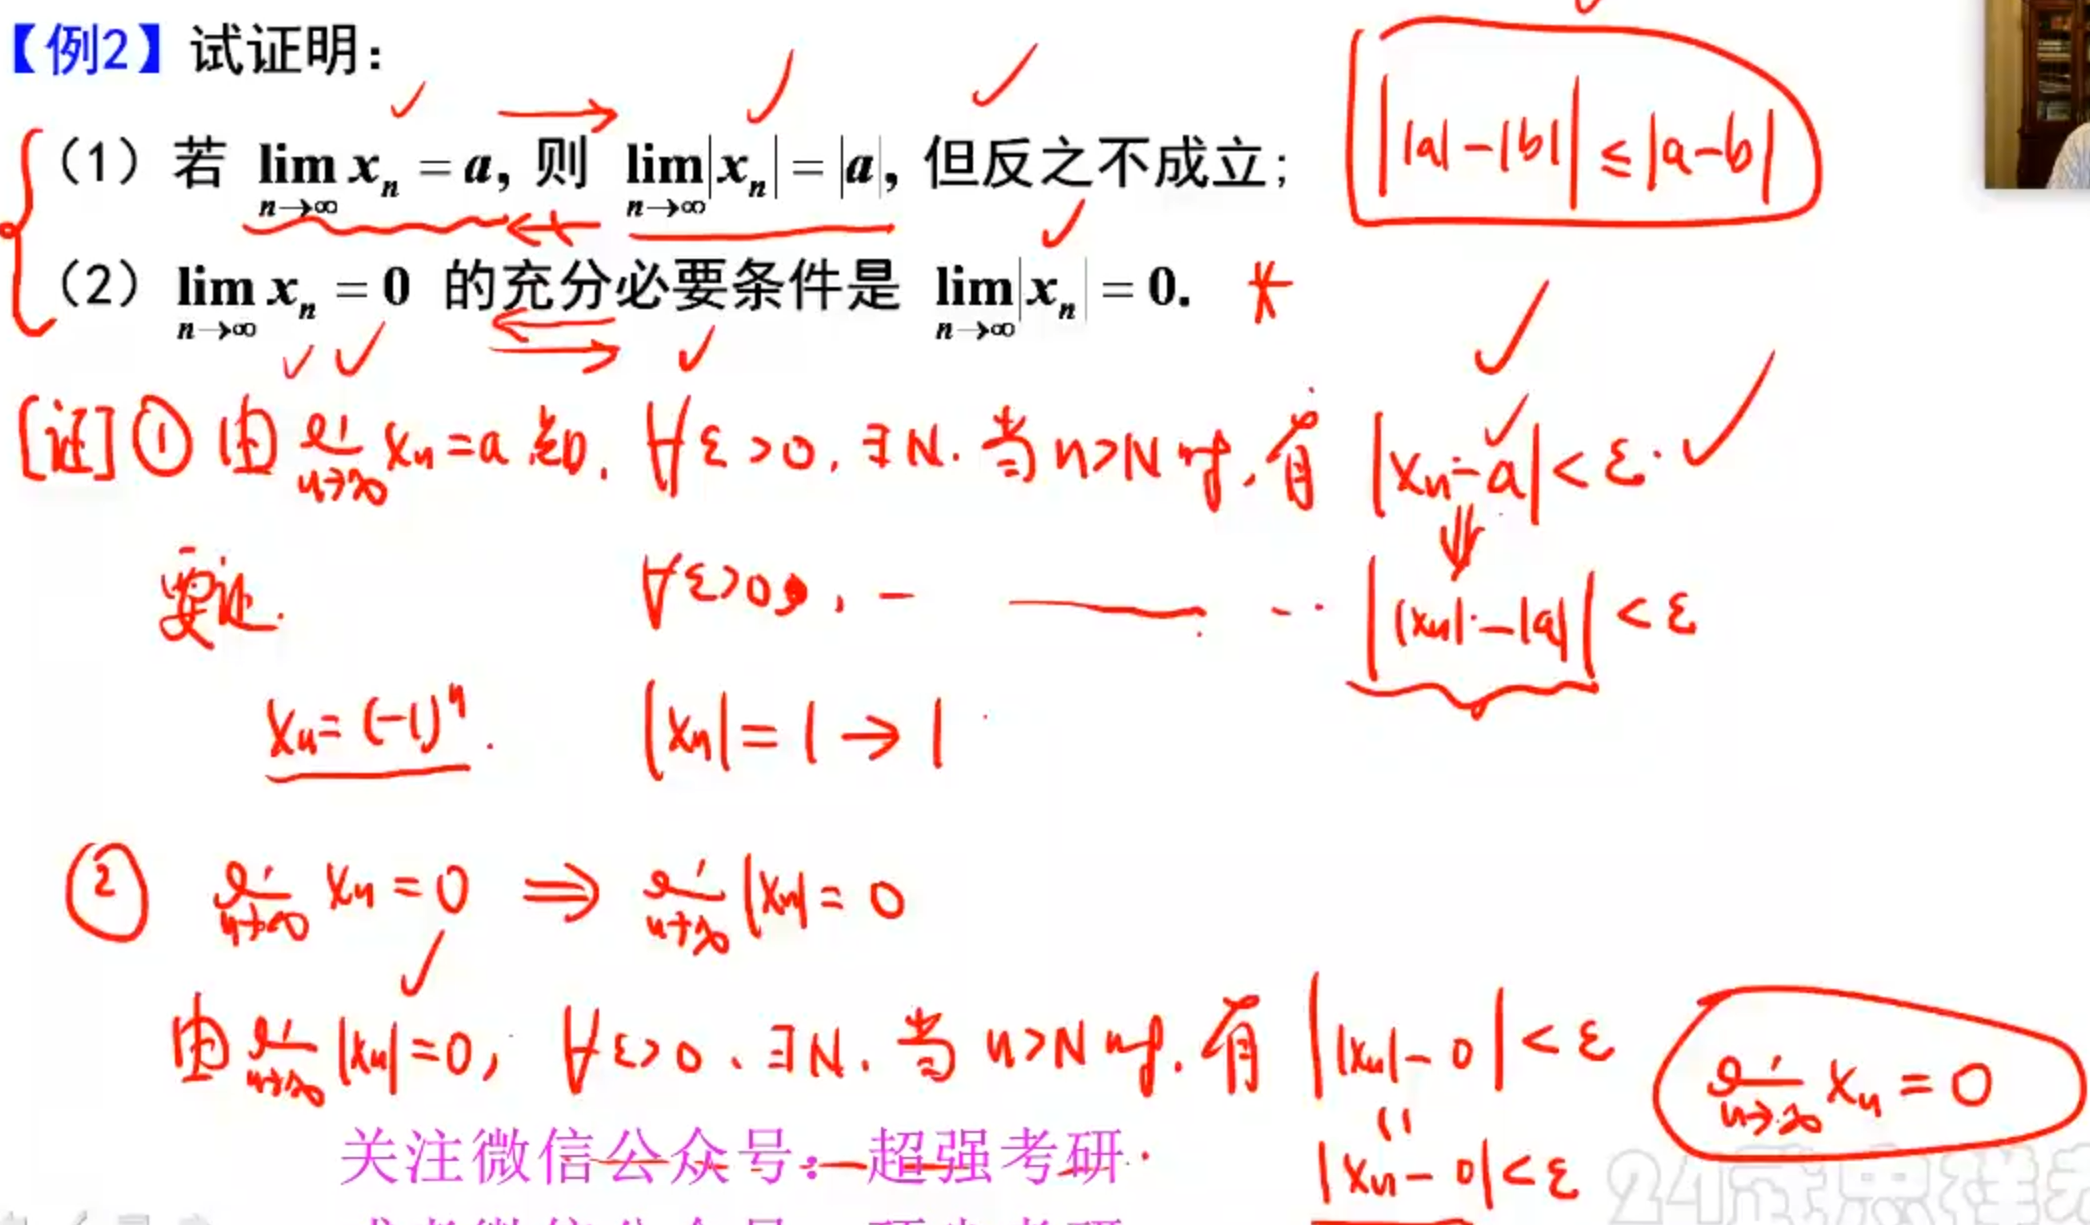 【例2】试证明：
(1) 若 lim_{n→∞} x_n = a, 则 lim_{n→∞} |x_n| = |a|, 但反之不成立；
||a|-|b|| ≤ |a-b|
(2) lim_{n→∞} x_n = 0 的充分必要条件是 lim_{n→∞} |x_n| = 0. *
[证] ① 由 lim_{n→∞} x_n = a 知. ∀ε>0, ∃N. 当 n>N 时, 有 |x_n - a| < ε.
⇓
要证. ∀ε>0, - —— ... ||x_n| - |a|| < ε
x_n = (-1)^n. |x_n| = 1 → 1
② lim_{n→∞} x_n = 0 ⇒ lim_{n→∞} |x_n| = 0
由 lim_{n→∞} |x_n| = 0, ∀ε>0, ∃N. 当 n>N 时. 有 ||x_n| - 0| < ε
lim_{n→∞} x_n = 0
关注微信公众号：超强考研
|x_n - 0| < ε